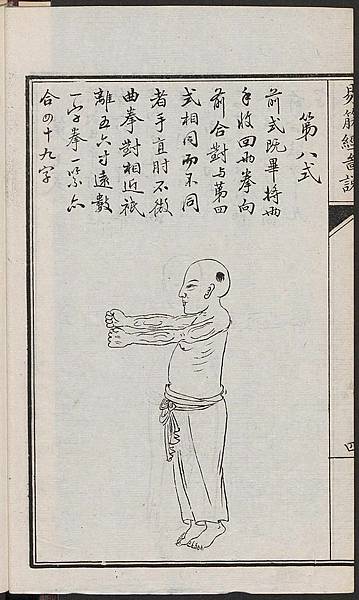 易筋經圖說
四
第八式
前式既畢將兩
手收回兩拳向
前合對與第四
式相同而不同
者手直肘不微
曲拳對相近祇
離五六寸遠數
一字拳一緊亦
合四十九字